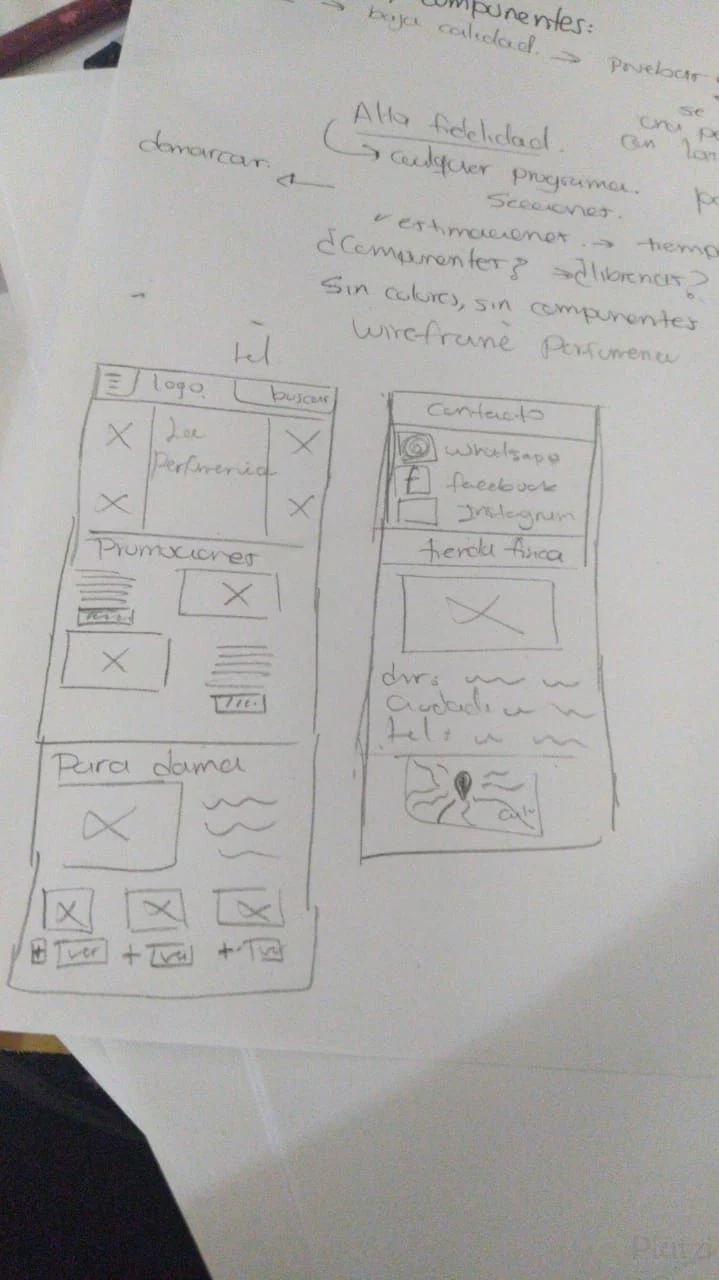 componentes:
→ baja calidad. → pruebar
se
Alta fidelidad.
con
→ cualquier programa.
demarcar. ←
secciones.
estimaciones. →
¿Componentes? →¿librerias?
Sin colores, sin componentes
Wireframe Perfumeria
tel
logo. buscar
La
Perfumeria
Promociones
Para dama
+ ver + ver + ver
Contacto
Whatsapp
f facebook
Instagram
tienda fisica
dir:
Ciudad:
tel:
Platzi